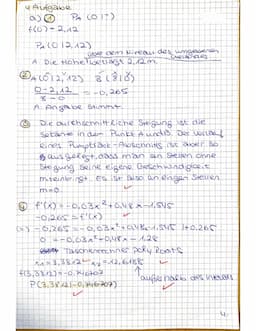 4 Aufgabe
a) ① PA (0|-)
f(0) = 2,12
PA (0|2,12)
über dem Niveau des umgebenen
A. Die Höhe beträgt 2,12m.
② A(0|2,12) B(8|0)
0-2,12 / 8-0 = -0,265
A. Angabe stimmt.
③ Die durchschnittliche Steigung ist die
Sekante in den Punkt A und B. Der Verlauf
eines Pumptrack-Abschnitts ist aber so
ausgelegt, dass man an Stellen ohne
Steigung seine eigene Geschwindigkeit
mit einbringt. Es ist also an einigen Stellen
m=0
④ f'(x) = -0,03x²+0,48x-1,545
-0,265 = f'(x)
-0,265 = -0,03x²+0,48x-1,545 |+0,265
0 = -0,03x²+0,48x-1,28
Taschenrechner Poly Roots
x1 = 3,3812 x2 = 12,6188
f(3,3812) = -0,746707
außerhalb des Intervalls
P(3,3812|-0,746707)
4.